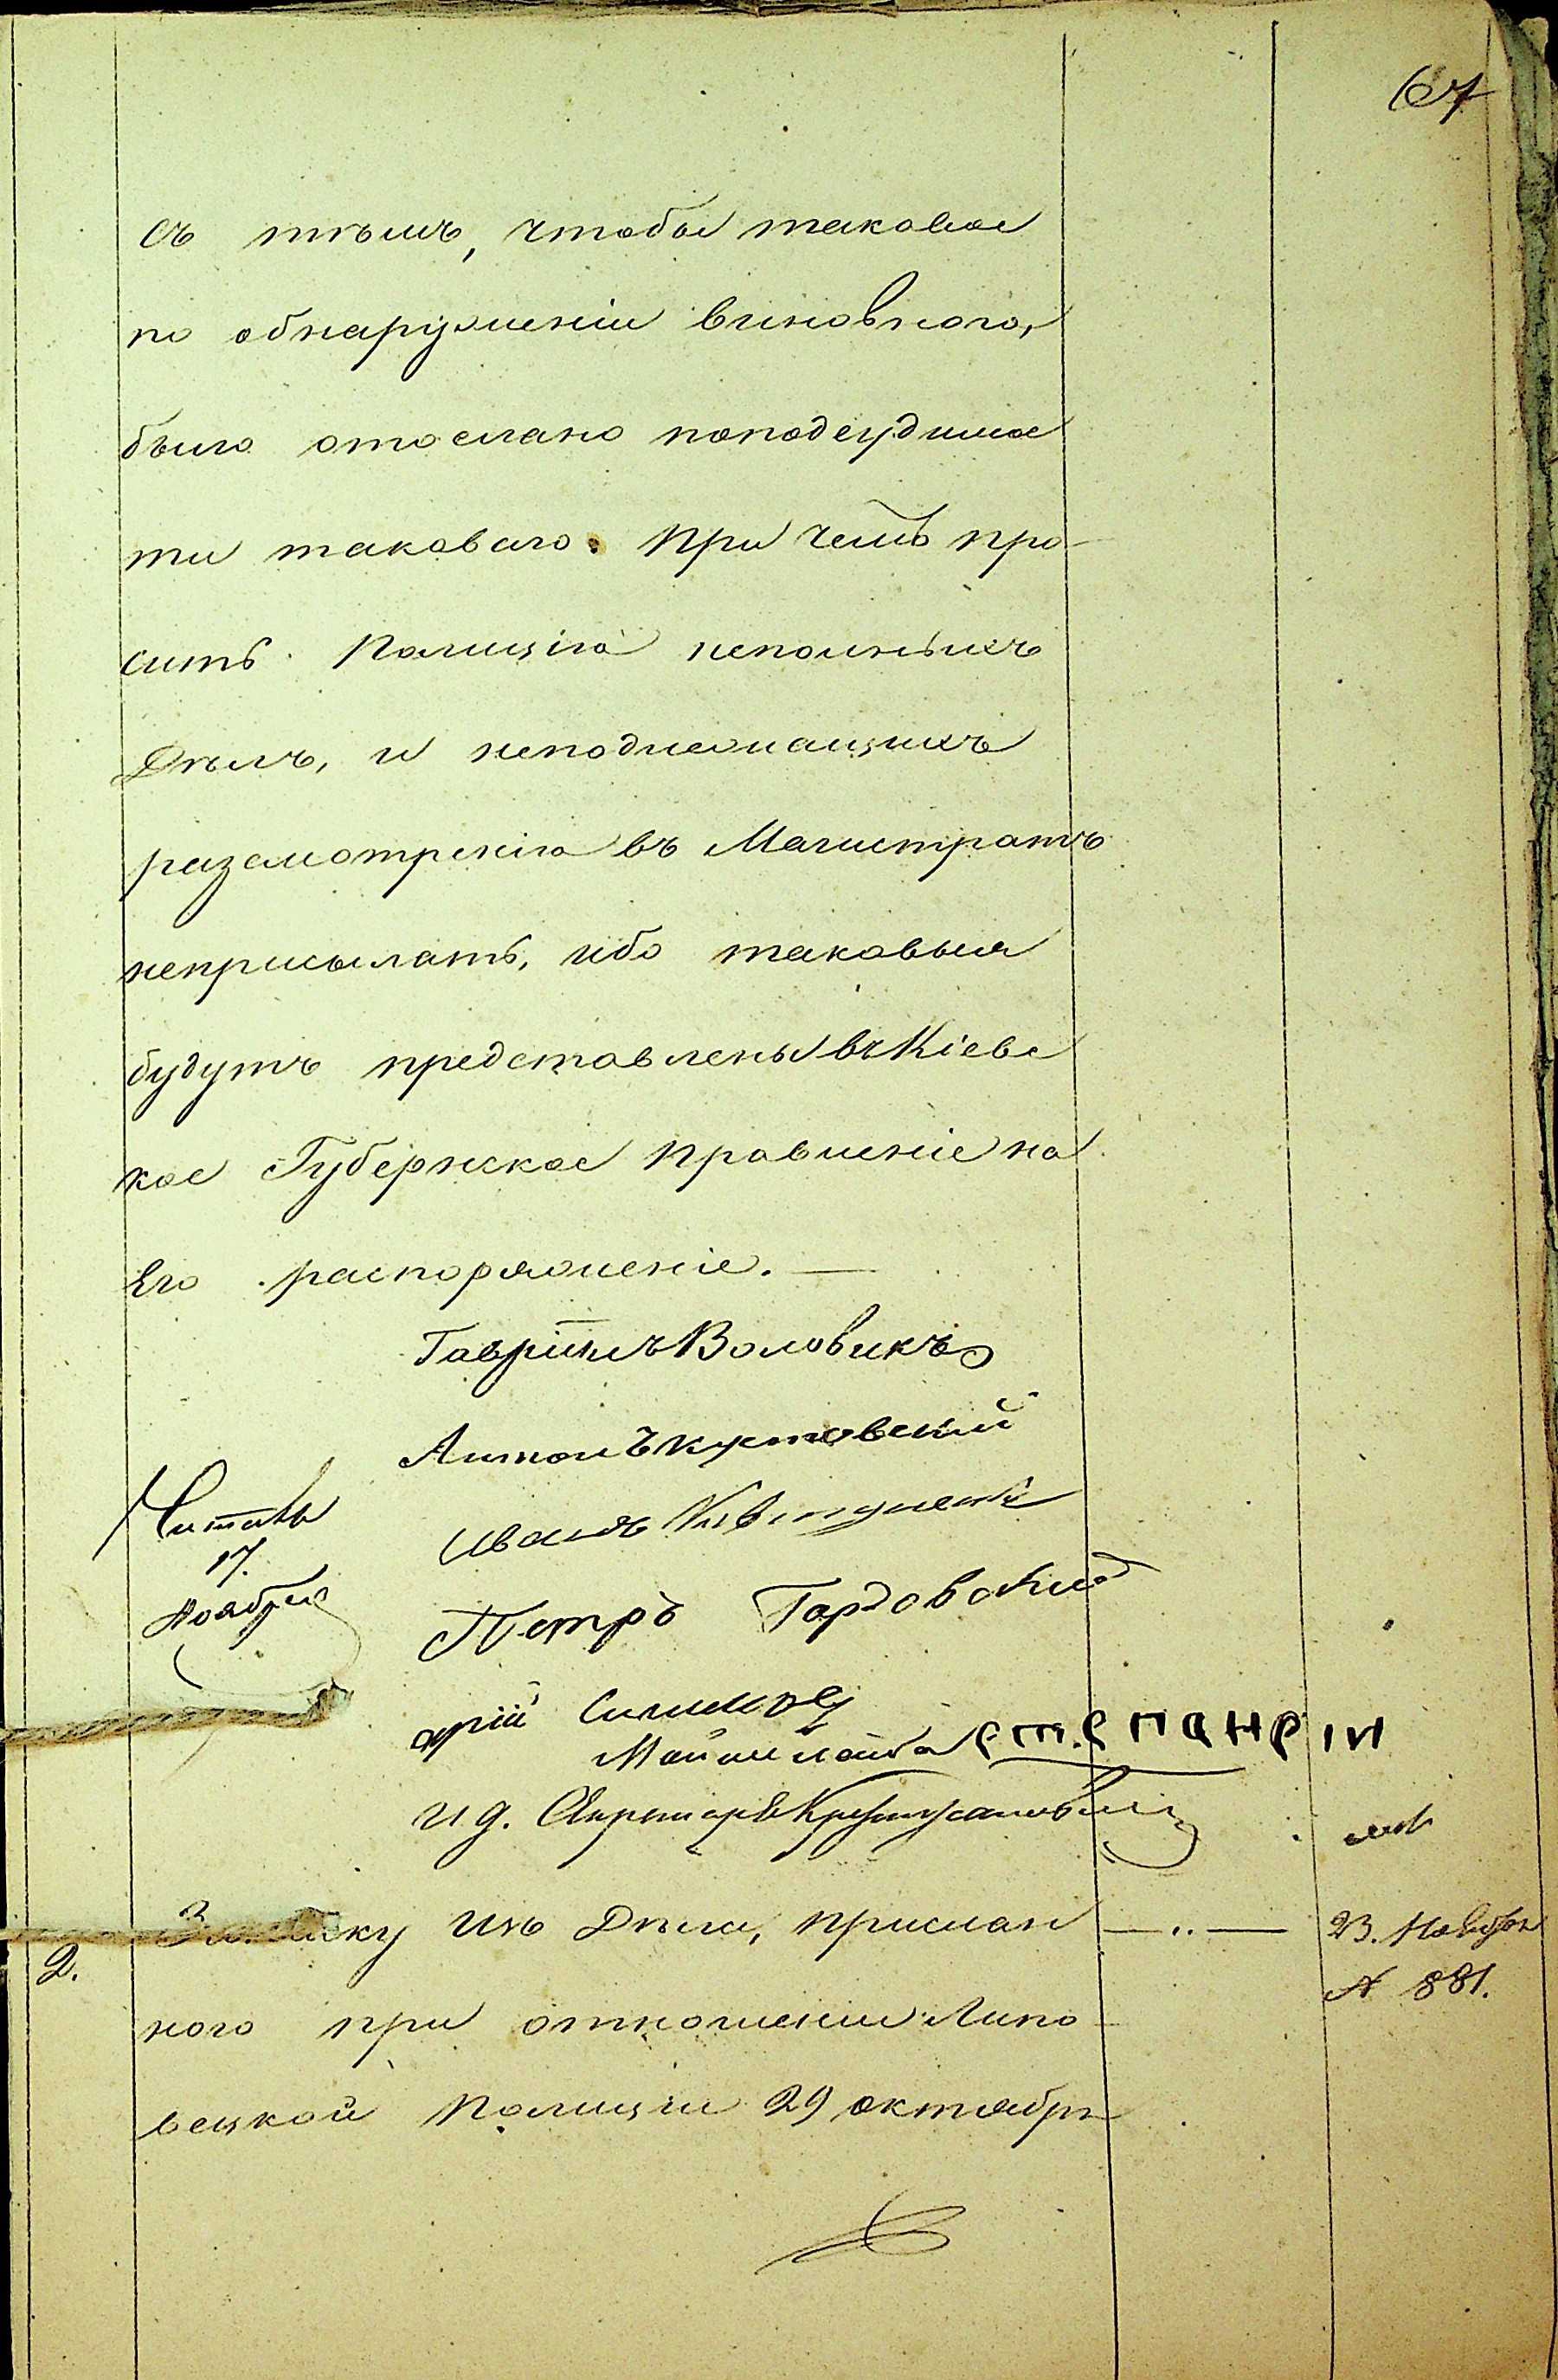 67
съ тѣмъ, чтобы таковое
по обнаруженіи виновного,
было отослано поподсудимос
ти таковаго. При чемъ про-
сить Полицію неполныхъ
Дѣлъ, и неподлежащихъ
разсмотренію въ Магистратъ
неприсылать, ибо таковыя
будутъ представлены въ Кіевс
кое Губернское правленіе на
Его распоряженіе. —
Гавріилъ Воловикъ
Антонъ Кутовский
Иванъ
Петръ Гордовский
Читалъ
17.
Ноября
И д. Секретаря
2.
ку изъ Дѣла, прислан — „ — 23. Ноября
№ 881.
ного при отношении Липо-
вецкой Полиции 29 октября